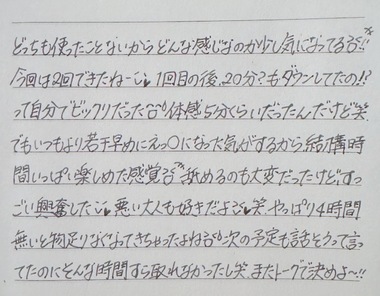 どっちも使ったことないからどんな感じなのか少し気になってる💦!!
今回は2回できたねー♥ 1回目の後、20分?もダウンしてたの!?
って自分でビックリだった 体感5分くらいだったんだけど笑
でもいつもより若干早めにえっ〇になった気がするから結構時
間いっぱい楽しめた感覚 舐めるのも大変だったけど、すっ
ごい興奮した♥ 悪い大人も好きだよ 笑 やっぱり4時間
無いと物足りなくなってきちゃったよね 次の予定も話そうって言っ
てたのにそんな時間すら取れなかったし笑 またトークで決めよ〜!!